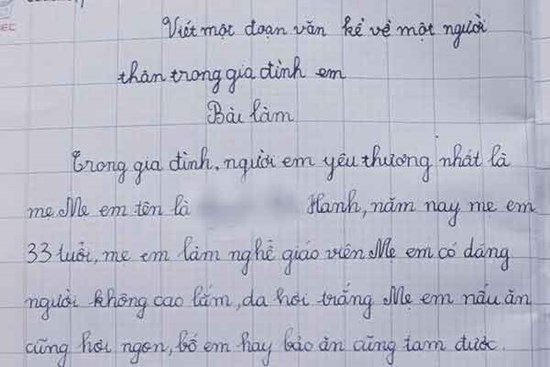 EC
Viết một đoạn văn kể về một người
thân trong gia đình em
Bài làm
Trong gia đình, người em yêu thương nhất là
mẹ. Mẹ em tên là Hanh, năm nay mẹ em
33 tuổi, mẹ em làm nghề giáo viên. Mẹ em có dáng
người không cao lắm, da hơi trắng Mẹ em nấu ăn
cũng hơi ngon, bố em hay bảo ăn cũng tạm được.